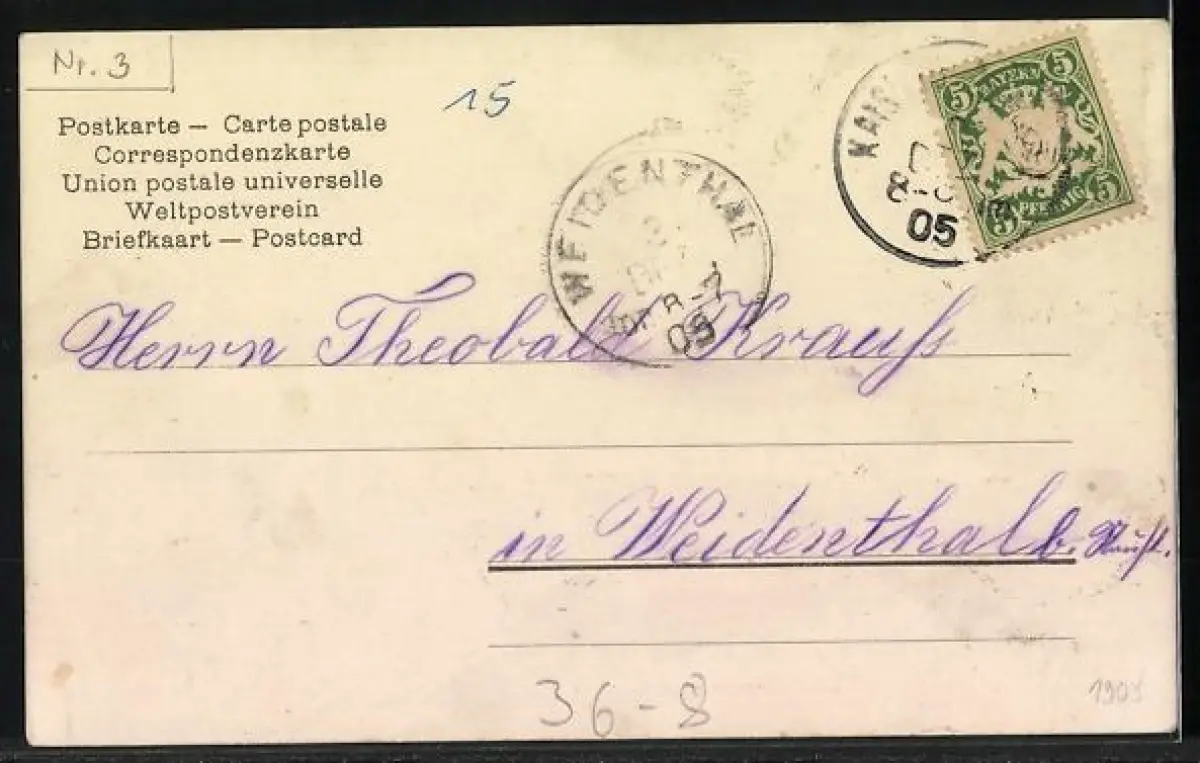 Nr. 3
15
Postkarte — Carte postale
Correspondenzkarte
Union postale universelle
Weltpostverein
Briefkaart — Postcard
WEIDENTHAL
8-7
05
KAI
8-
05
5 BAYERN 5
5 PFENNIG 5
Herrn Theobald Krauß
in Weidenthal b.
36-8